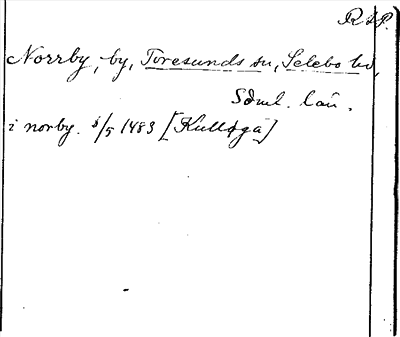 R A P.
Norrby, by, Toresunds sn, Selebo hd,
Söml. län.
i norby. 8/5 1483 [Kulløga]